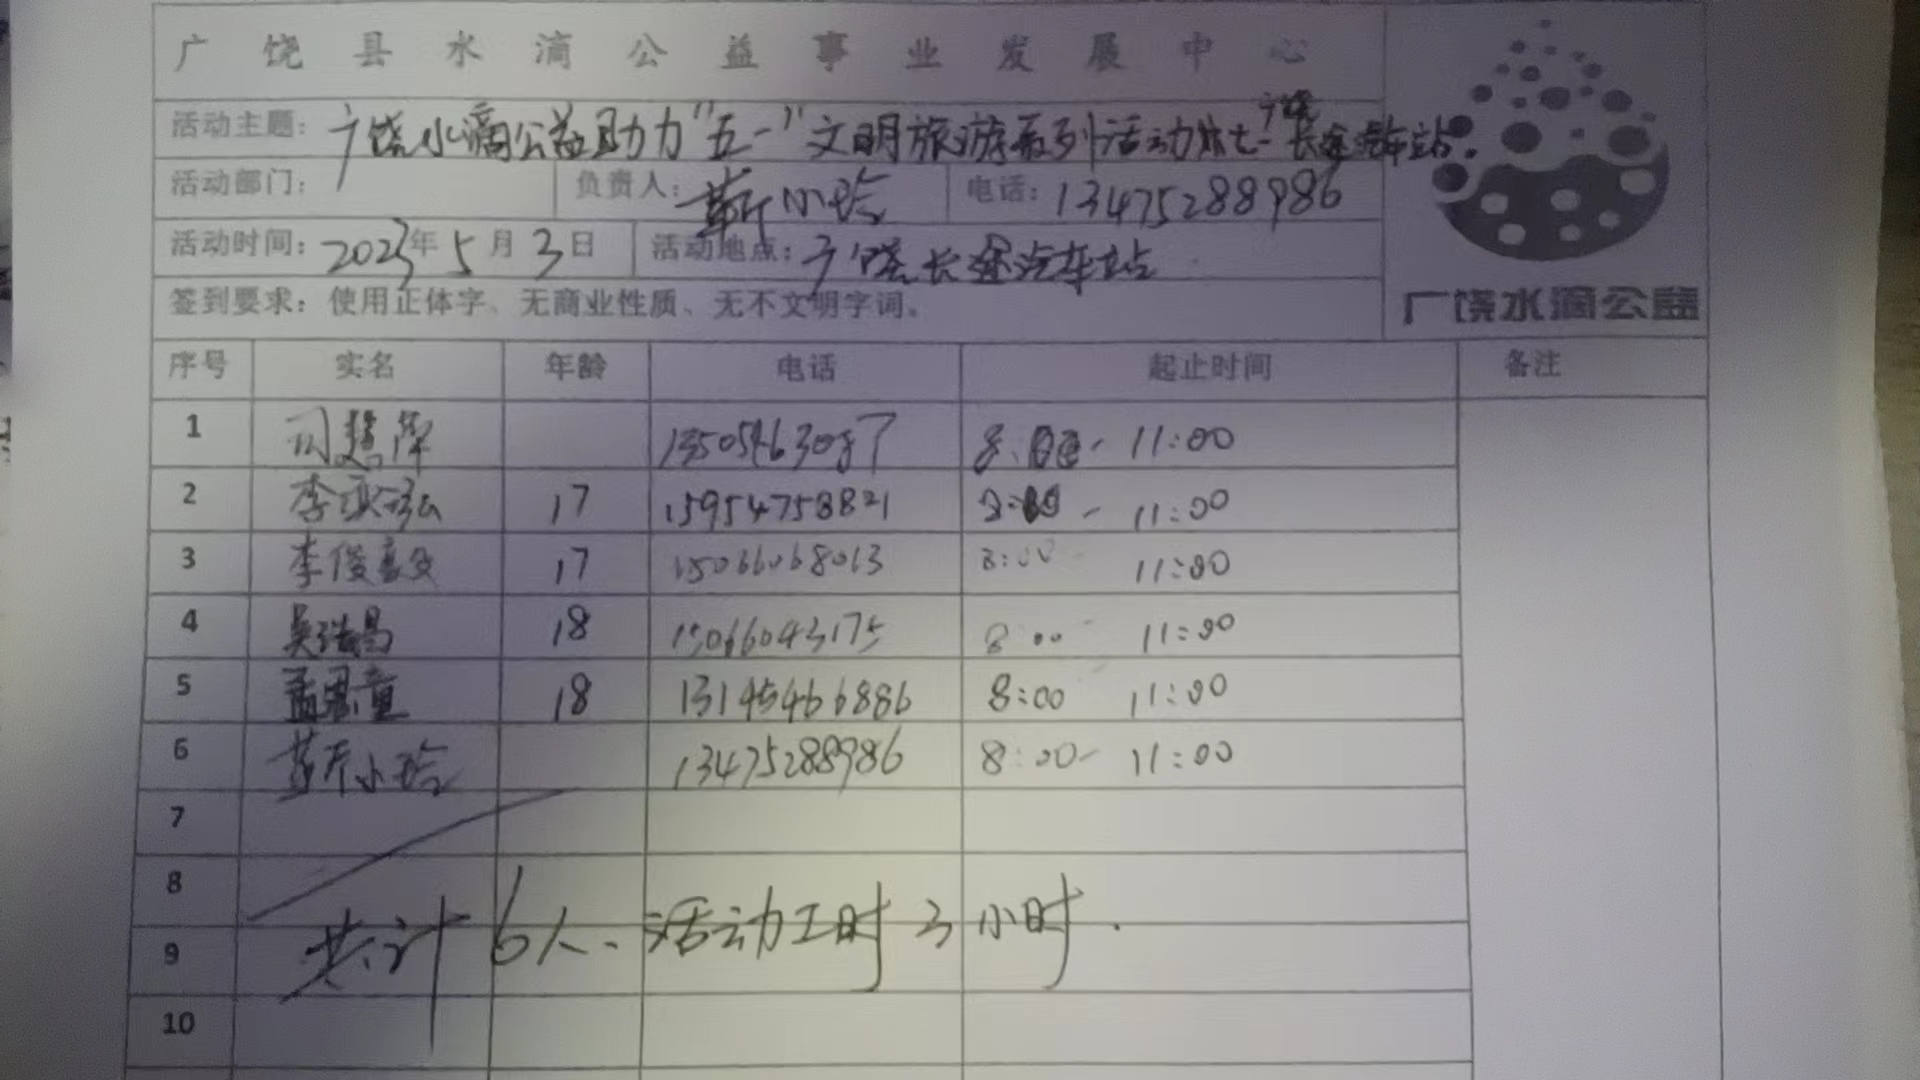 广饶县水滴公益事业发展中心
活动主题：广饶水滴公益助力"五一"文明旅游系列活动 七 广饶长途汽车站。
活动部门： 负责人：靳小玲 电话：13475288986
活动时间：2023年5月3日 活动地点：广饶长途汽车站
签到要求：使用正体字、无商业性质、无不文明字词。
广饶水滴公益
序号 实名 年龄 电话 起止时间 备注
1 11:00
2 李 17 15954758821 11:00
3 李俊 17 15066068013 8:00 11:00
4 吴 昌 18 15066043175 8:00 11:00
5 孟 童 18 13145466886 8:00 11:00
6 靳小玲 13475288986 8:00- 11:00
7
8
共计6人、活动工时3小时.
9
10